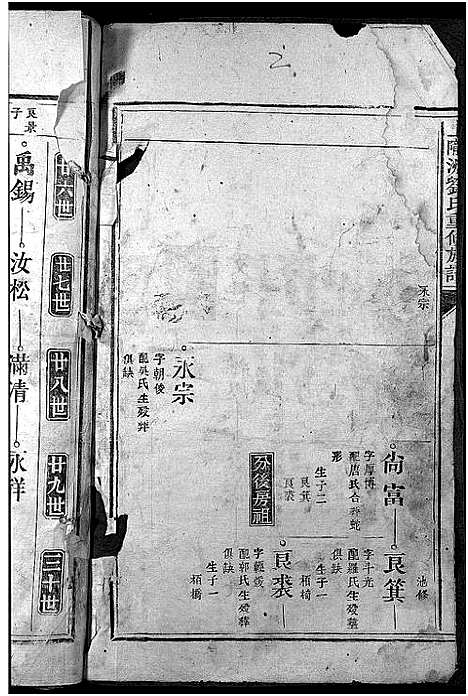 劉氏重修族譜
永宗
尚富
良箕
池修
字厚博
配唐氏合葬蛇
形
生子二
良箕
良裘
字斗光
配羅氏生歿葬
俱缺
生子一
栢橋
分後房祖
良裘
字輕後
配郭氏生歿葬
俱缺
生子一
栢橋
永宗
字朝後
配吳氏生歿葬
俱缺
2
廿六世
廿七世
廿八世
廿九世
三十世
良景
子
禹錫
汝松
滿清
永祥